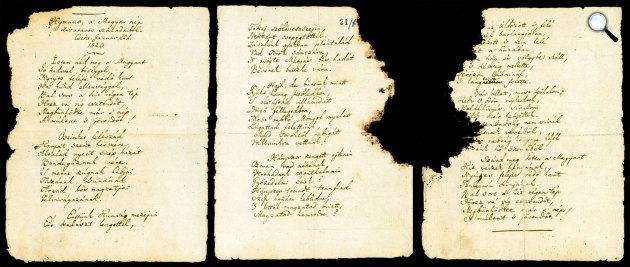 Hymnus, a' Magyar nép
zivataros századaiból.
Cseke, Januar. 22d.
1823
Isten áldd meg a' Magyart
Jó kedvvel, bőséggel,
Nyújts feléje védő kart,
Ha küzd ellenséggel;
Bal sors a' kit régen tép,
Hozz rá víg esztendőt,
Megbűnhődte már e' nép
A' multat 's jövendőt!
Őseinket felhozád
Kárpát szent bérczére,
Általad nyert szép hazát
Bendegúznak vére.
'S merre zúgnak habjai
Tiszának, Dunának,
Árpád hős magzatjai
Felvirágozának.
Értünk Kúnság mezején
Ért kalászt lengettél,
21/
Tokaj szőlővesszein
Nektárt csepegtettél.
Zászlónk gyakran plántálád
Vad Török sánczára,
'S nyögte Mátyás bús hadát
Bécsnek büszke vára.
Hajh, de bűneink miatt
Gyúlt harag kebledben,
'S elsújtád villámidat
Dörgő fellegedben,
Most rabló Mongol nyilát
Zúgattad felettünk,
Majd Töröktől rabigát
Vállainkra vettünk.
Hányszor zengett ajkain
Ozman vad népének
Vert hadunk csonthalmain
Győzedelmi ének!
Hányszor támadt tenfiad
Szép hazám kebledre,
'S lettél magzatod miatt
Magzatod hamvedre?
üldözött 's felé
barlangjában,
felette.
Vár állott, most kőhalom,
Kedv 's öröm röpkedtek,
Halálhörgés, siralom
helyettek.
nem virúl
véréből,
rabság' könnye hull
szeméből.
Szánd meg Isten a' Magyart
Kit vészek hányának,
Nyújts feléje védő kart
Tengerén kínjának.
Bal sors a' kit régen tép
Hozz rá víg esztendőt,
Megbűnhődte már e' nép
A' multat 's jövendőt!